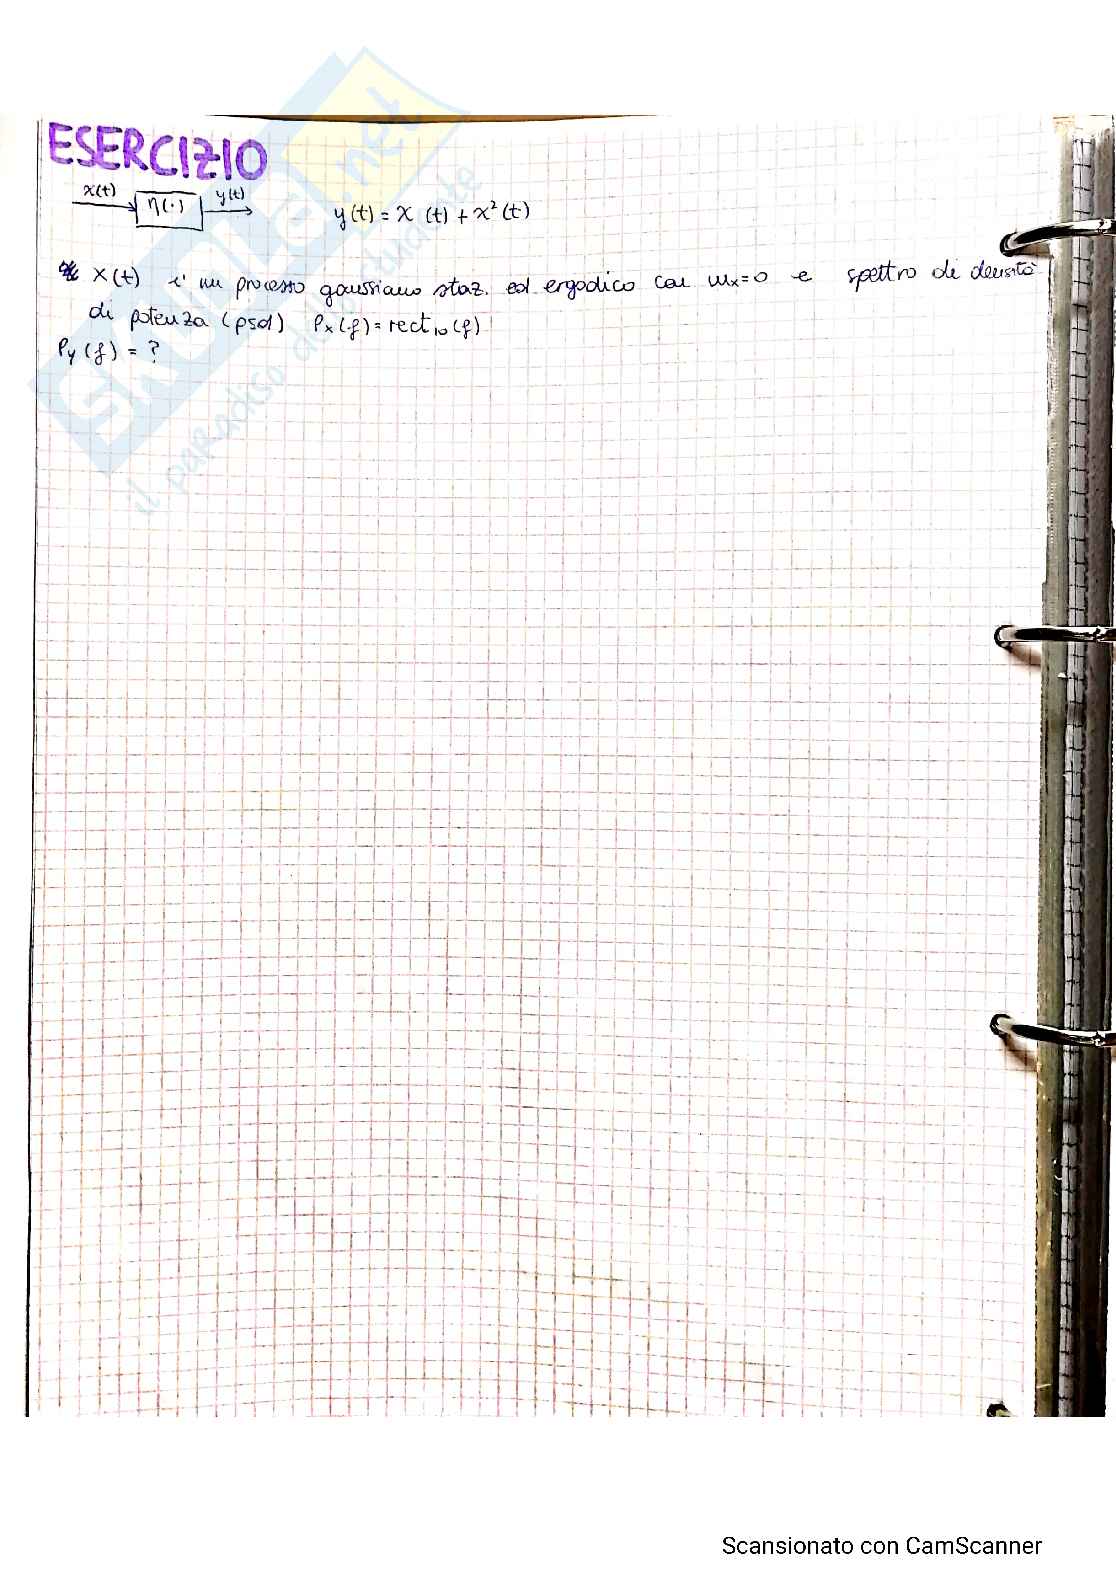 ESERCIZIO
x(t) η(·) y(t) y(t) = x (t) + x²(t)
X(t) è un processo gaussiano staz. ed ergodico con mx=0 e spettro di densità
di potenza (psd) Px(f) = rect10(f)
Py(f) = ?
SKUOLA.net
il paradiso dello studente
Scansionato con CamScanner